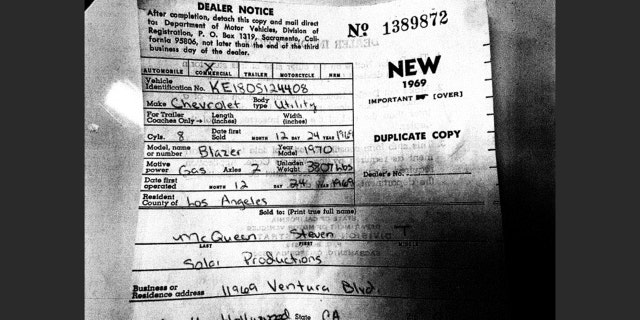 DEALER NOTICE
After completion, detach this copy and mail direct
to: Department of Motor Vehicles, Division of
Registration, P. O. Box 1319, Sacramento, Cali-
fornia 95806, not later than the end of the third
business day of the dealer.
No 1389872
NEW
1969
IMPORTANT [OVER]
DUPLICATE COPY
Dealer's No.
X
AUTOMOBILE COMMERCIAL TRAILER MOTORCYCLE NRM
Vehicle
Identification No. KE180S124408
Make Chevrolet Body type Utility
For Trailer Coaches Only Length (inches) Width (inches)
Cyls. 8 Date first Sold MONTH 12 DAY 24 YEAR 1969
Model, name or number Blazer Year Model 1970
Motive power Gas Axles 2 Unladen Weight 3807 lbs
Date first operated MONTH 12 DAY 24 YEAR 1969
Resident County of Los Angeles
Sold to: (Print true full name)
McQueen Steven T
LAST FIRST
Solar Productions
Business or
Residence address 11969 Ventura Blvd.
Hollywood State CA